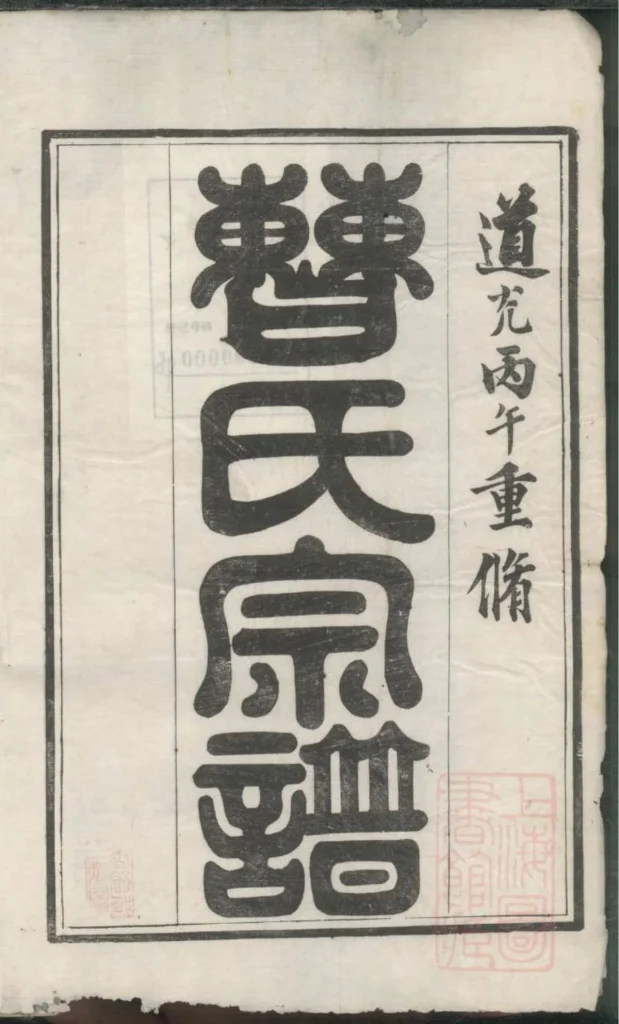 道光丙午重脩
曹氏宗譜
上海圖書館藏